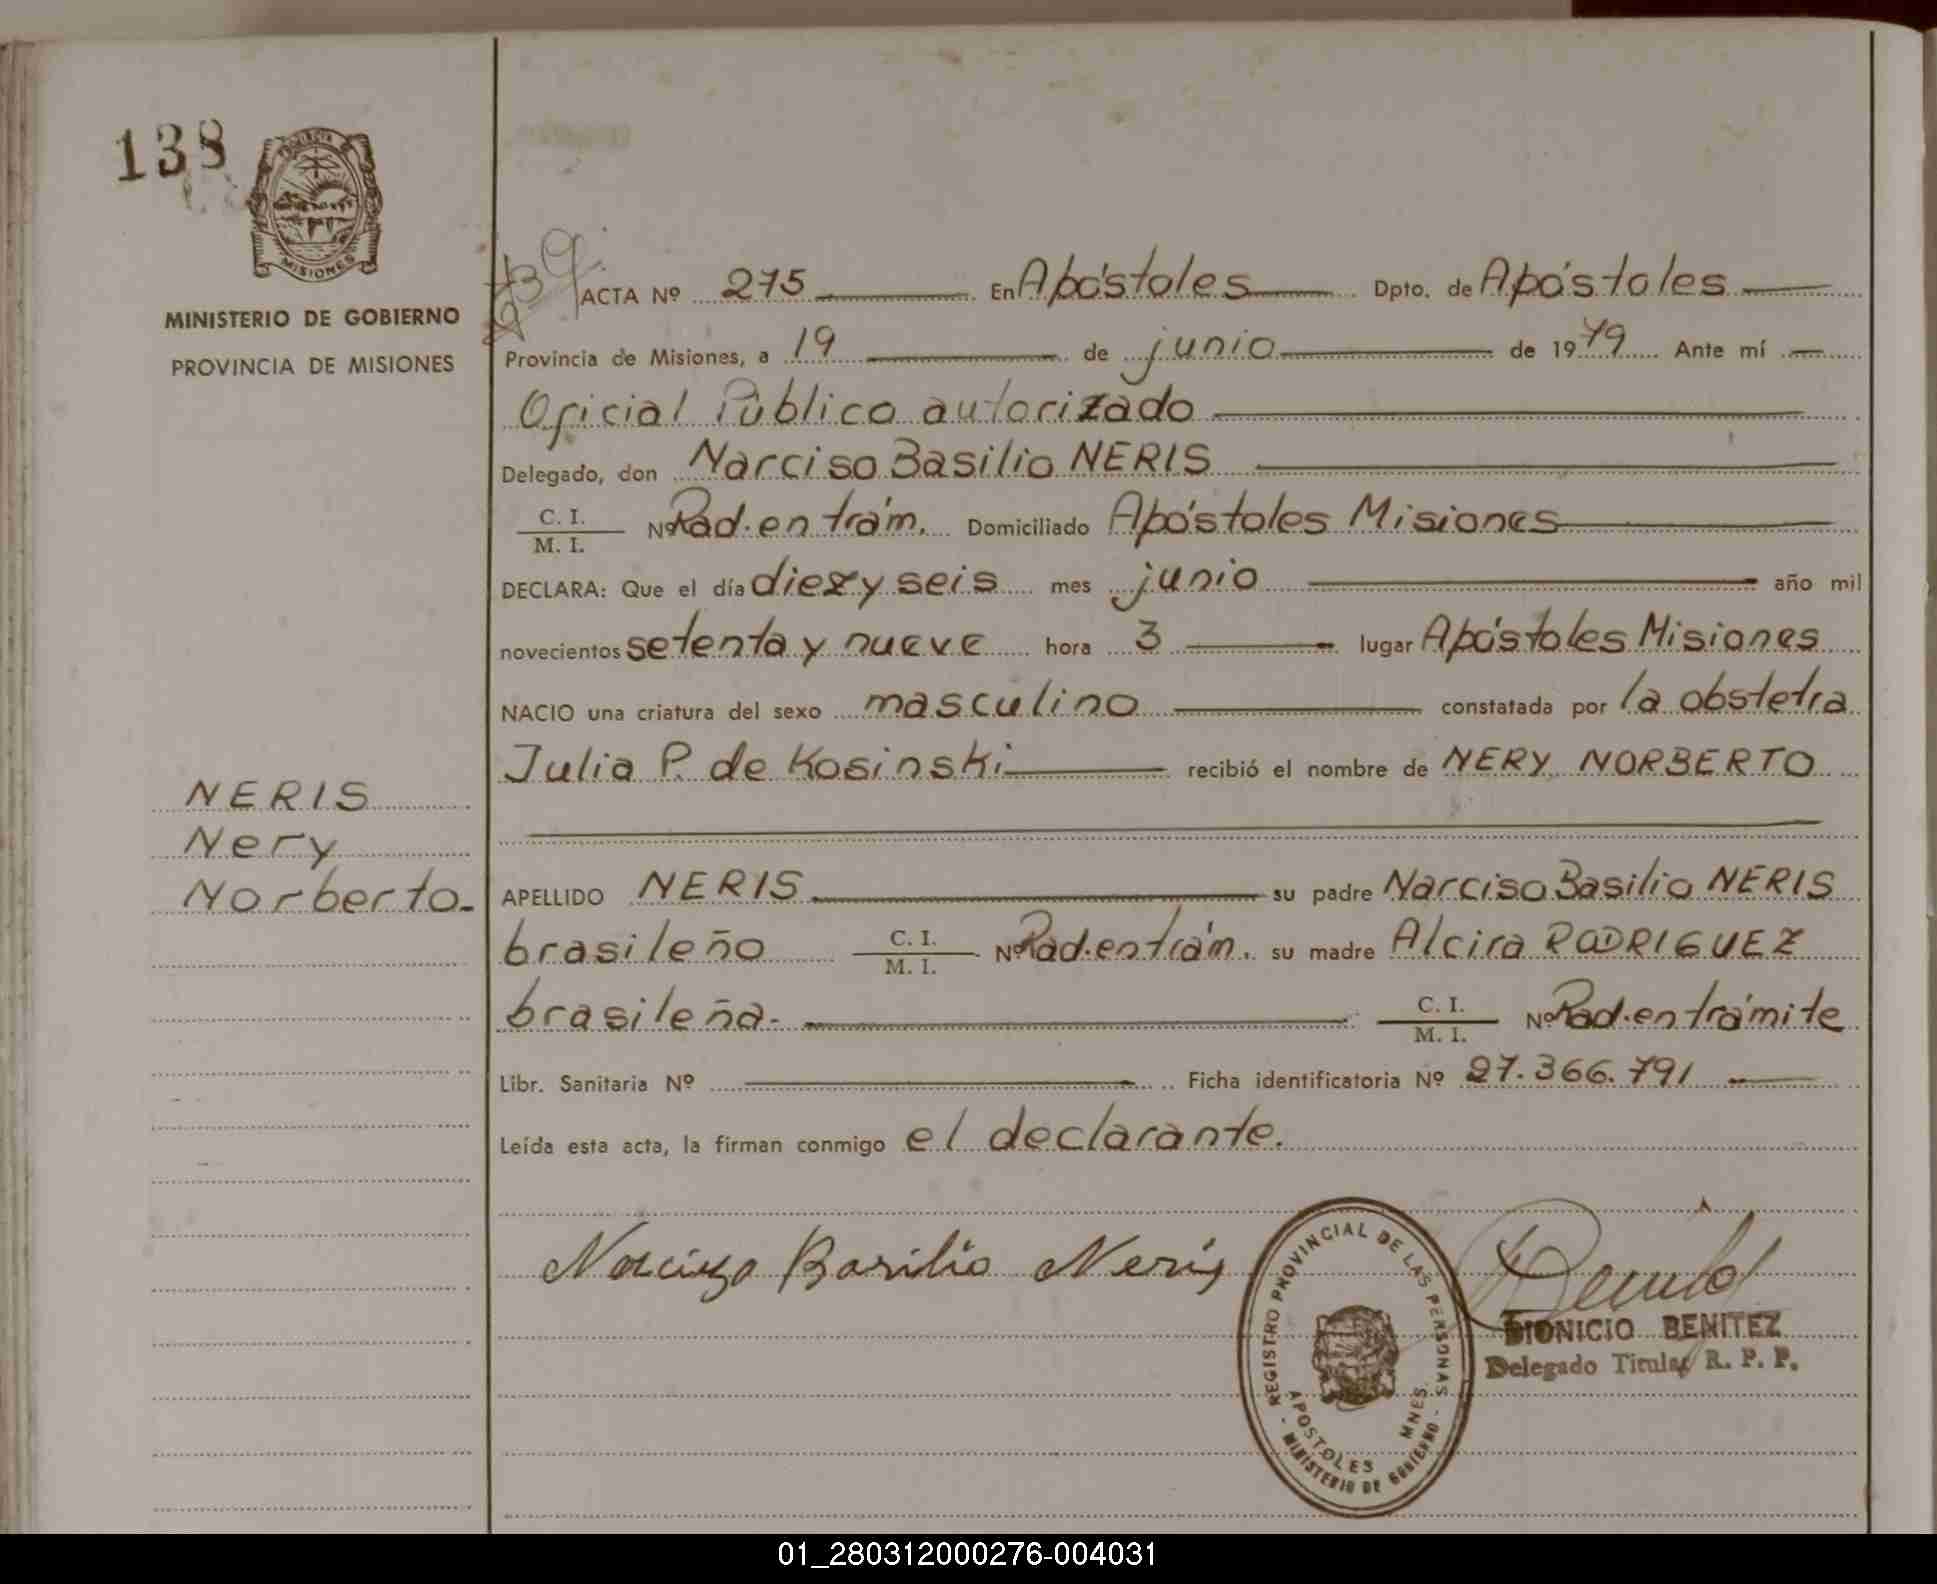 138
PROVINCIA DE
MISIONES
MINISTERIO DE GOBIERNO
PROVINCIA DE MISIONES
NERIS
Nery
Norberto.
ACTA Nº 275 En Apóstoles Dpto. de Apóstoles
Provincia de Misiones, a 19 de junio de 1979 Ante mí
Oficial Público autorizado
Delegado, don Narciso Basilio NERIS
C. I.
M. I. Nº Rad. en trám. Domiciliado Apóstoles Misiones
DECLARA: Que el día diez y seis mes junio año mil
novecientos setenta y nueve hora 3 lugar Apóstoles Misiones
NACIO una criatura del sexo masculino constatada por la obstetra
Julia P. de Kosinski recibió el nombre de NERY NORBERTO
APELLIDO NERIS su padre Narciso Basilio NERIS
brasileño C. I. M. I. Nº Rad. en trám. su madre Alcira RODRIGUEZ
brasileña. C. I. M. I. Nº Rad. en trámite
Libr. Sanitaria Nº Ficha identificatoria Nº 27.366.791
Leída esta acta, la firman conmigo el declarante.
Narcizo Basilio Neris
REGISTRO PROVINCIAL DE LAS PERSONAS
APOSTOLES MNES.
- MINISTERIO DE GOBIERNO -
DIONICIO BENITEZ
Delegado Titular R. P. P.
01_280312000276-004031